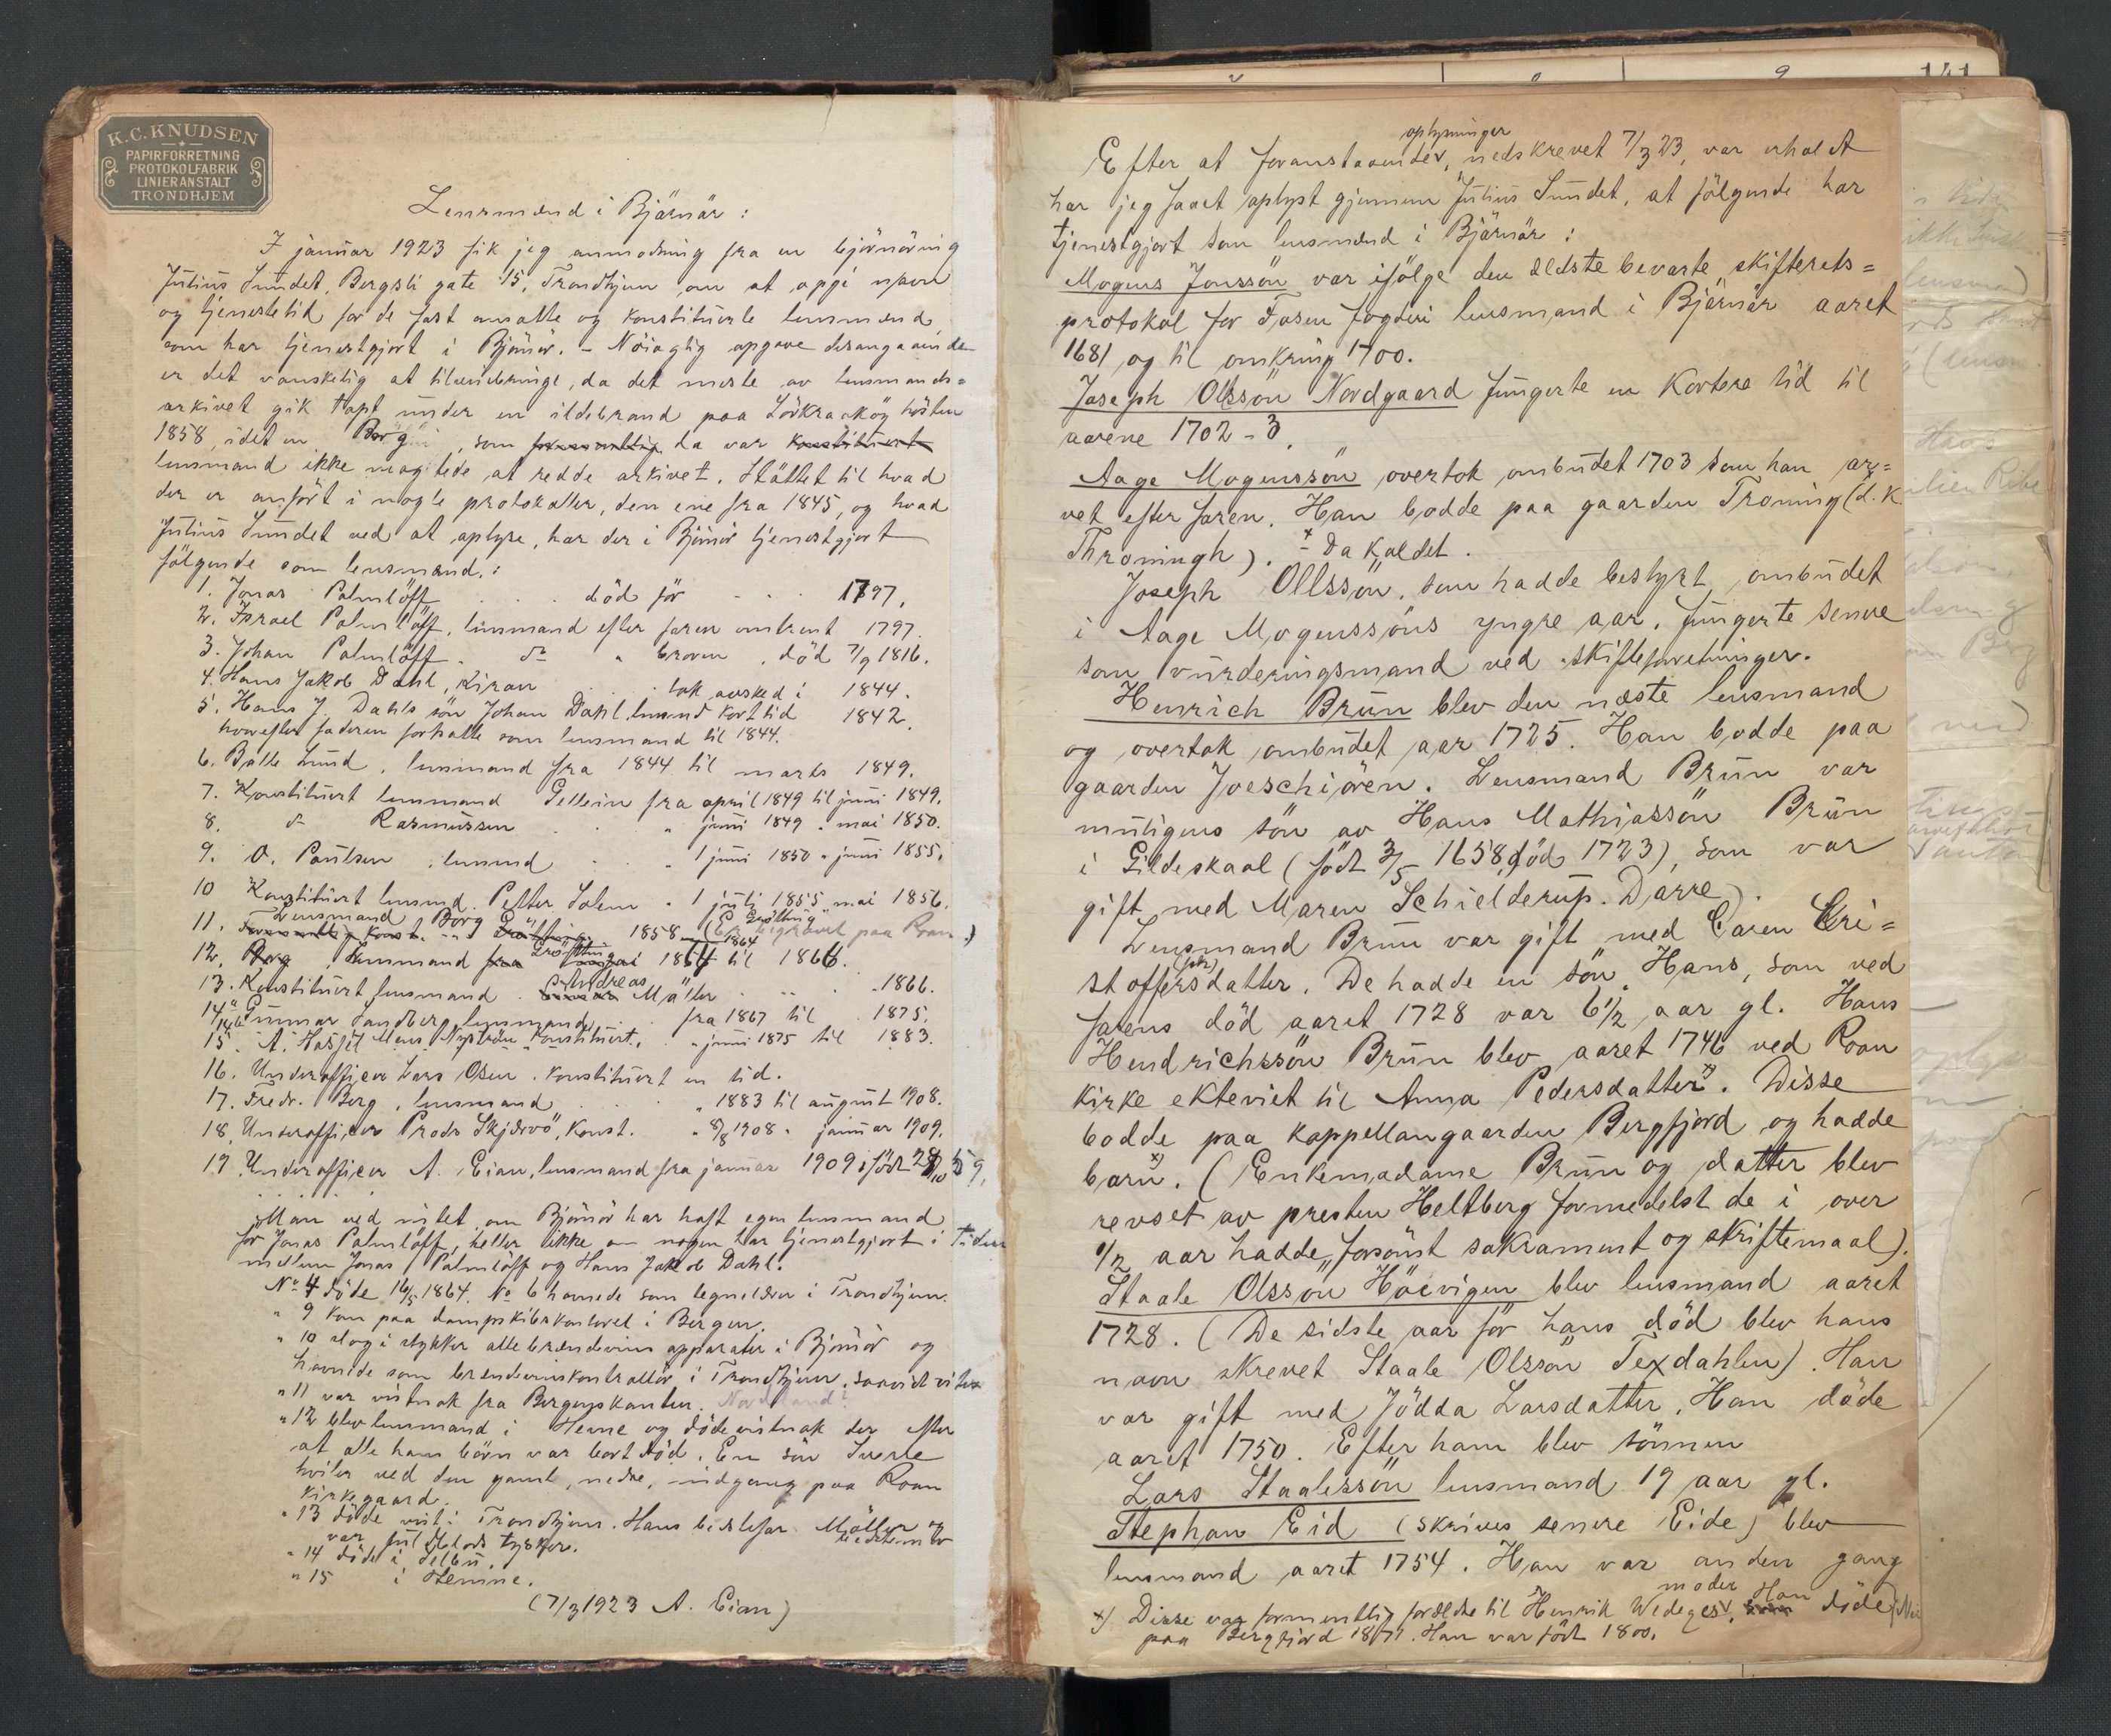 K.C. KNUDSEN
PAPIRFORRETNING
PROTOKOLFABRIK
LINIERANSTALT
TRONDHJEM
Lensmænd i Bjørnør:
I januar 1923 fik jeg anmodning fra en bjørnøring
Julius Sundet, Bergsli gate 15, Trondhjem om at opgi navn
og tjenestetid for de fast ansatte og konstituerte lensmænd
som har tjenestgjort i Bjørnør. – Nøiagtig opgave desangaaende
er det vanskelig at tilveiebringe, da det meste av lensmands=
arkivet gik tapt under en ildebrand paa høsten
1858, idet en Borg, som da var
lensmand ikke magtede at redde arkivet. Støttet til hvad
der er anført i nogle protokoller, den ene fra 1845, og hvad
Julius Sundet ved at oplyse, har der i Bjørnør tjenestgjort
følgende som lensmænd:
1. Jonas Palmløff . . . død før . . . 1797.
2. Israel Palmløff, lensmand efter faren omtrent 1797.
3. Johan Palmløff . do " broren , død 7/9 1816.
4. Hans Jakob Dahl, Kiran . . . tok avsked i 1844.
5. Hans J. Dahls søn Johan Dahl lensmd kort tid 1842,
hvorefter faderen fortsatte som lensmand til 1844.
6. Balle Lund, lensmand fra 1844 til marts 1849.
7. Konstituert lensmand Gellein fra april 1849 til juni 1849.
8. do Rasmussen . . " juni 1849 " mai 1850.
9. O. Paulsen, lensmd . . " 1 juni 1850 " juni 1855.
10 Konstituert lensmd. Petter Solem " 1 juli 1855 mai 1856.
11. Lensmand Borg 1858 (Er begravet paa Roan.)
12. Grøtting lensmand 1864 til 1866.
13. Konstituert lensmand Andreas Møller . . . 1866.
14. Gunnar Sandberg lensmand . . fra 1867 til 1875.
15. A. Hasfjel Mens Nystrøm konstituert. " juni 1875 til 1883.
16. Underofficer Lars Osen. konstituert en tid.
17. Fredr. Berg, lensmand . . . " 1883 til august 1908.
18. Underofficer Peder Skjærvø, konst. " 8/8 1908 " januar 1909.
19. Underofficer A. Eian, lensmand fra januar 1909 født
Man ved ikke om Bjørnør har haft egen lensmand
før Jonas Palmløff, heller ikke om nogen har tjenestgjort i tiden
mellem Jonas Palmløff og Hans Jakob Dahl.
No 4 døde 16/5 1864. No 6 havnede som tegnelærer i Trondhjem.
" 9 kom paa dampskibskontoret i Bergen.
" 10 slog i stykker alle brændevins apparater i Bjørnør og
havnede som brændevinskontrollør i Trondhjem, saavidt vites
" 11 var vistnok fra Bergenskanten. Nordland?
" 12 blev lensmand i Hemne og døde vistnok der efter
at alle hans børn var bortdød. En søn Sverre
hviler ved den gamle, nedre, indgang paa Roan
kirkegaard.
" 13 døde vist i Trondhjem. Hans bedstefar Møller og bedstemor
var fuldblods tyskere.
" 14 døde i Selbu.
" 15 i Hemne.
(7/3 1923 A. Eian)
141
Efter at foranstaaende oplysninger, nedskrevet 7/3 23, var erholdt
har jeg faaet oplyst gjennem Julius Sundet, at følgende har
tjenestgjort som lensmænd i Bjørnør:
Mogens Jonssön var ifølge den ældste bevarte skifterets=
protokol for Fosen fogderi lensmand i Bjørnør aaret
1681 og til omkring 1700.
Joseph Olssön Nordgaard fungerte en kortere tid til
aarene 1702-3.
Aage Mogenssön overtok ombudet 1703 som han ar=
vet efter faren. Han bodde paa gaarden Troning (d.k.
Throningh). x da kaldet.
Joseph Ollssön, som hadde bestyrt ombudet
i Aage Mogenssöns yngre aar, fungerte senere
som vurderingsmand ved skifteforretninger.
Henrich Brun blev den næste lensmand
og overtok ombudet aar 1725. Han bodde paa
gaarden Joeschiören. Lensmand Brun var
muligens søn av Hans Mathiassön Brun
i Gildeskaal (født 3/5 1658, død 1723), som var
gift med Maren Schielderup. Darre).
Lensmand Brun var gift med Caren Cri=
stoffersdatter. De hadde en søn, Hans, som ved
farens død aaret 1728 var 6 1/2 aar gl. Hans
Hendrichssön Brun blev aaret 1746 ved Roan
kirke ekteviet til Anna Pedersdatter. Disse
bodde paa kappellangaarden Bergfjord og hadde
barn x). (Enkemadame Brun og datter blev
revset av presten Heltberg formedelst de i over
1/2 aar hadde "forsömt sakrament og skriftemaal).
Staale Olssön Höevigen blev lensmand aaret
1728. (De sidste aar før hans død blev hans
navn skrevet Staale Olssön Texdahlen). Han
var gift med Jödda Larsdatter. Han døde
aaret 1750. Efter ham blev sønnen
Lars Staalessön lensmand 19 aar gl.
Stephan Eid (skrives senere Eide) blev
lensmand aaret 1754. Han var anden gang
x) Disse var formentlig forældre til Henrik Wedeges moder. Han døde
paa Bergfjord 1871. Han var født 1800.